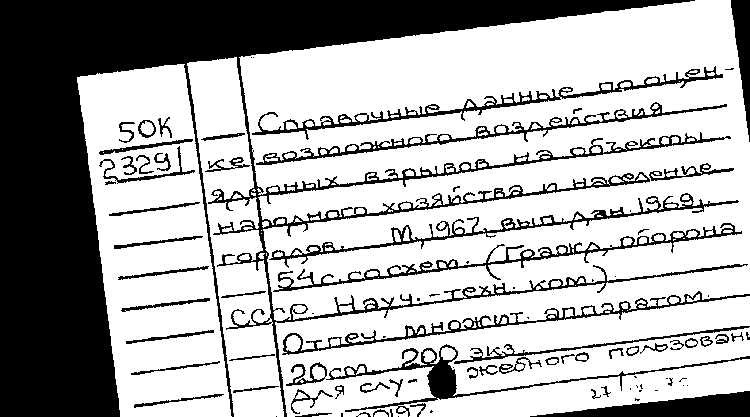 50К
23291
Справочные данные по оцен-
ке возможного воздействия
ядерных взрывов на объекты
народного хозяйства и население
городов. М, 1967, вып. дан. 1969.
54с. со схем. (Гражд. оборона
СССР. Науч.-техн. ком.)
Отпеч. множит. аппаратом.
20см. 200 экз.
Для слу- жебного пользовани